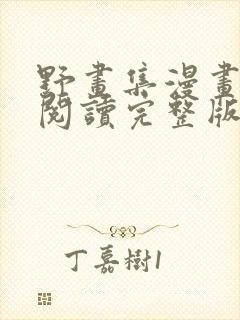 野畫集漫畫
閱讀完整版
丁嘉樹1